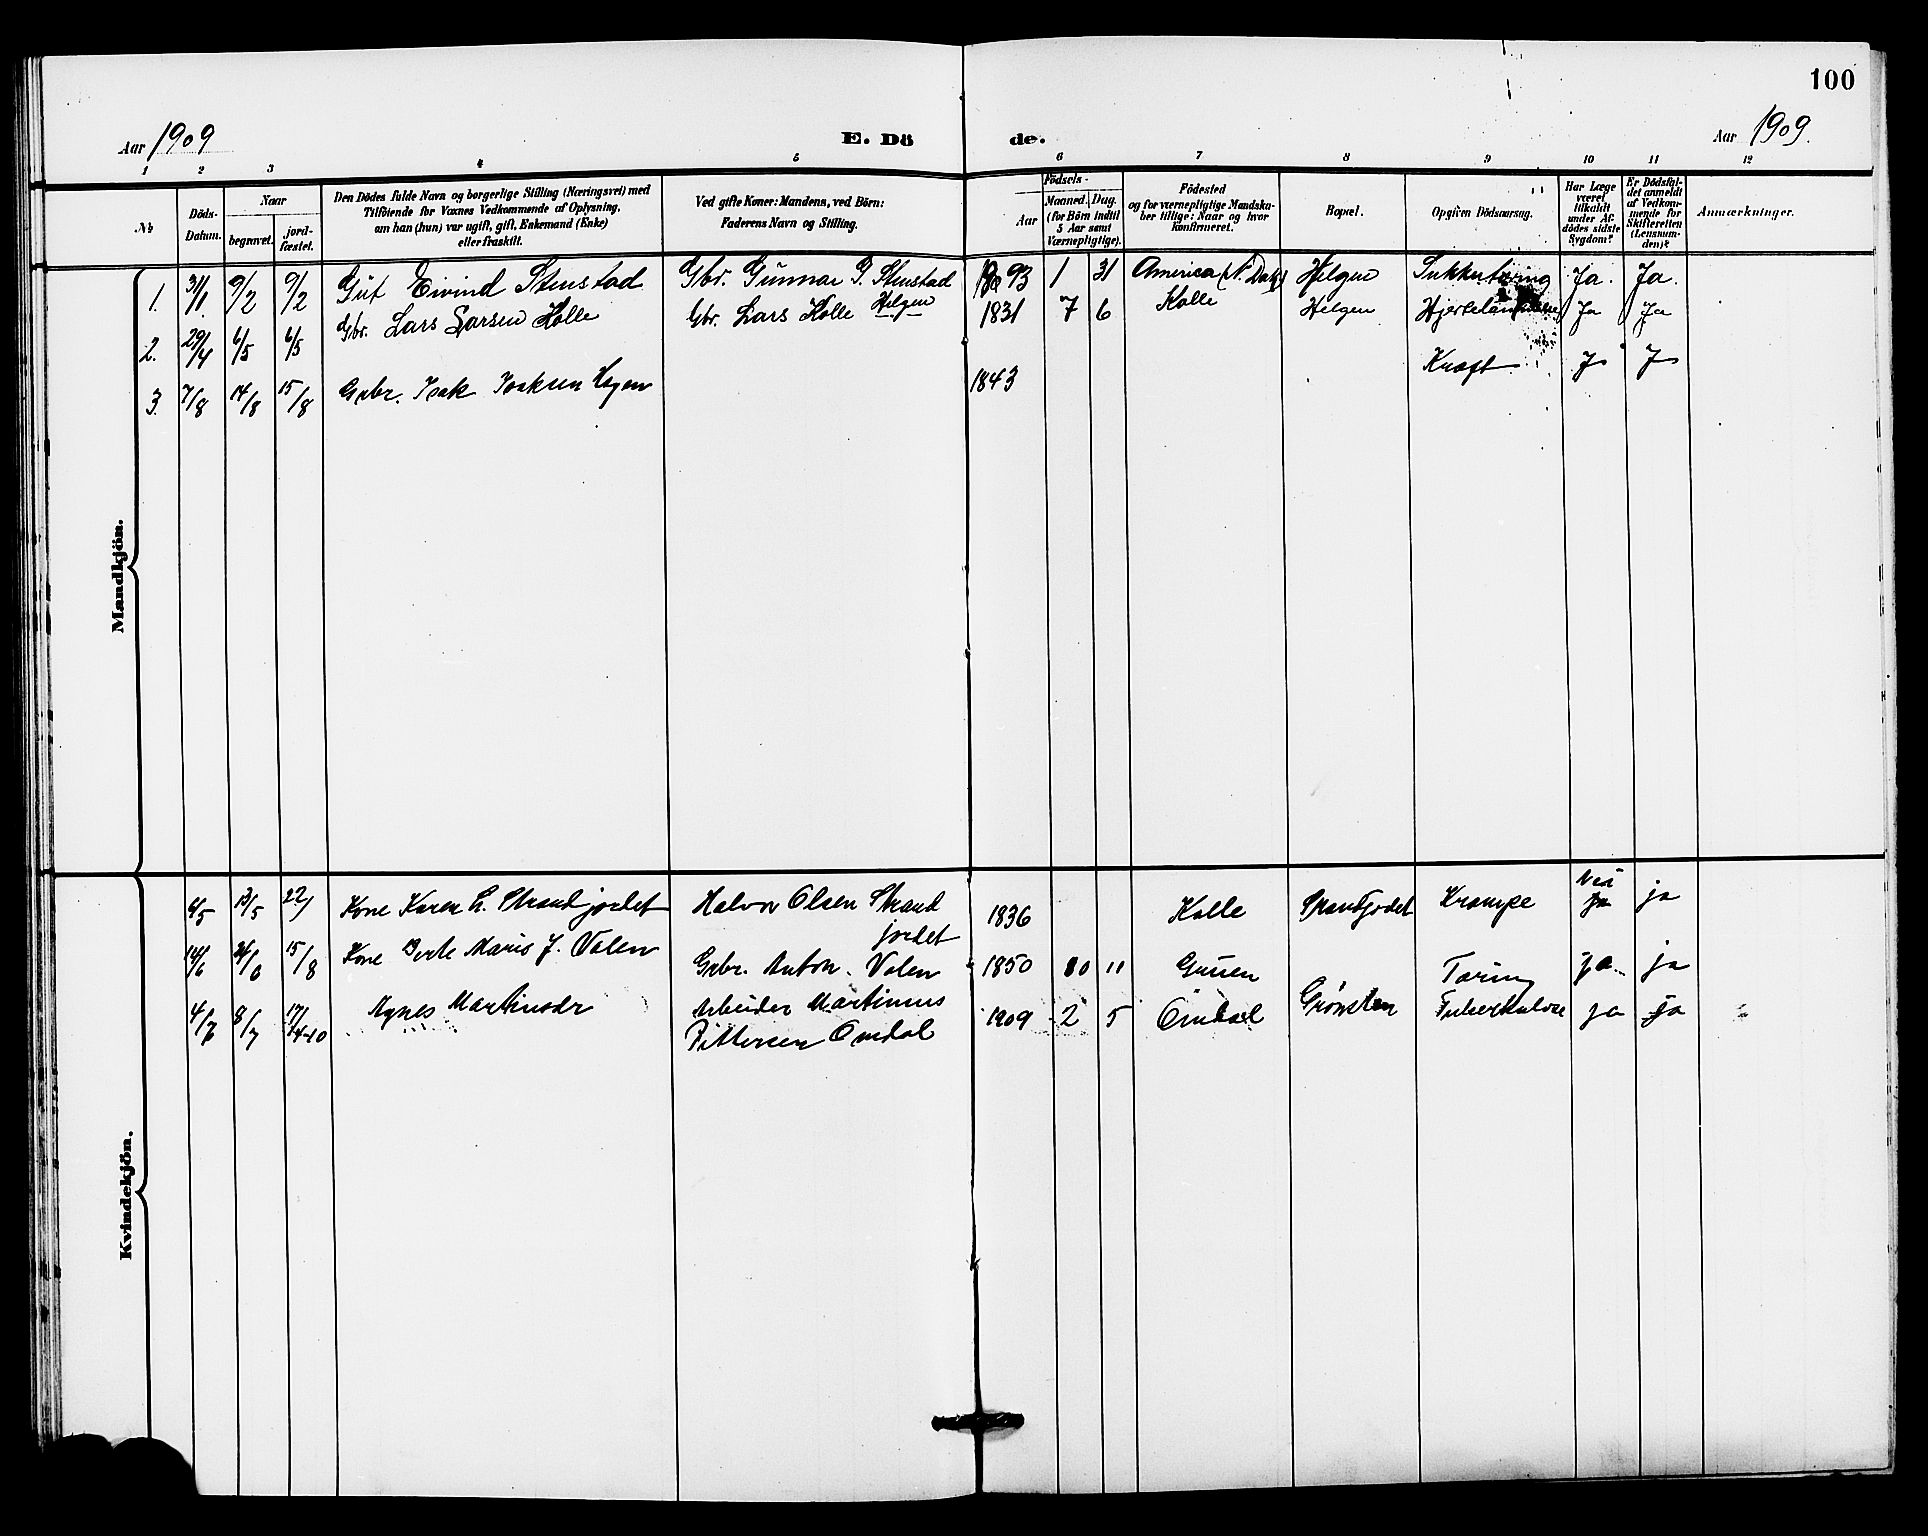 100
Aar 1909
E. Dö de.
Aar 1909.
1 2 3 4 5 6 7 8 9 10 11 12
№
Döds-
Datum.
Naar
begravet.
jord-
fæstet.
Den Dödes fulde Navn og borgerlige Stilling (Næringsvei) med
Tilföiende for Voxnes Vedkommende af Oplysning,
om han (hun) var ugift, gift, Enkemand (Enke)
eller fraskilt.
Ved gifte Koner: Mandens, ved Börn:
Faderens Navn og Stilling.
Födsels-
Aar
Maaned. Dag.
(for Börn indtil
5 Aar samt
Værnepligtige).
Födested
og for værnepligtige Mandska-
ber tillige: Naar og hvor
konfirmeret.
Bopæl.
Opgiven Dödsaarsag.
Har Læge
været
tilkaldt
under Af-
dödes sidste
Sygdom?
Er Dödsfal-
det anmeldt
af Vedkom-
mende for
Skifteretten
(Lensman-
den)?
Anmærkninger.
Mandkjön.
1. 31/1 9/2 9/2 Gut Eivind Stenstad Gbr. Gunnar G. Stenstad Helgen 1893 1 31 America (N. Dak) Helgen Sukkertæring Ja. Ja.
2. 29/4 6/5 6/5 Gbr. Lars Larsen Kolle Gbr. Lars Kolle 1831 7 6 Kolle Helgen Ja Ja
3. 7/8 14/8 15/8 Grbr. Isak Isaksen Hagen 1843 Kræft J J
Kvindekjön.
6/5 13/5 22/ Kone Karen L. Strandjordet Halvor Olsen Strand
jordet 1836 Kolle Strandjordet Krampe Nei ja
14/6 15/8 Kone Marie J. Valen Grbr. Anton Valen 1850 10 11 Tæring ja ja
4/7 8/7 17/ Agnes Martinsdr Arbeider Martinius
Pettersen Omdal 1909 2 5 Omdal Grönsten Tuberkulose ja ja